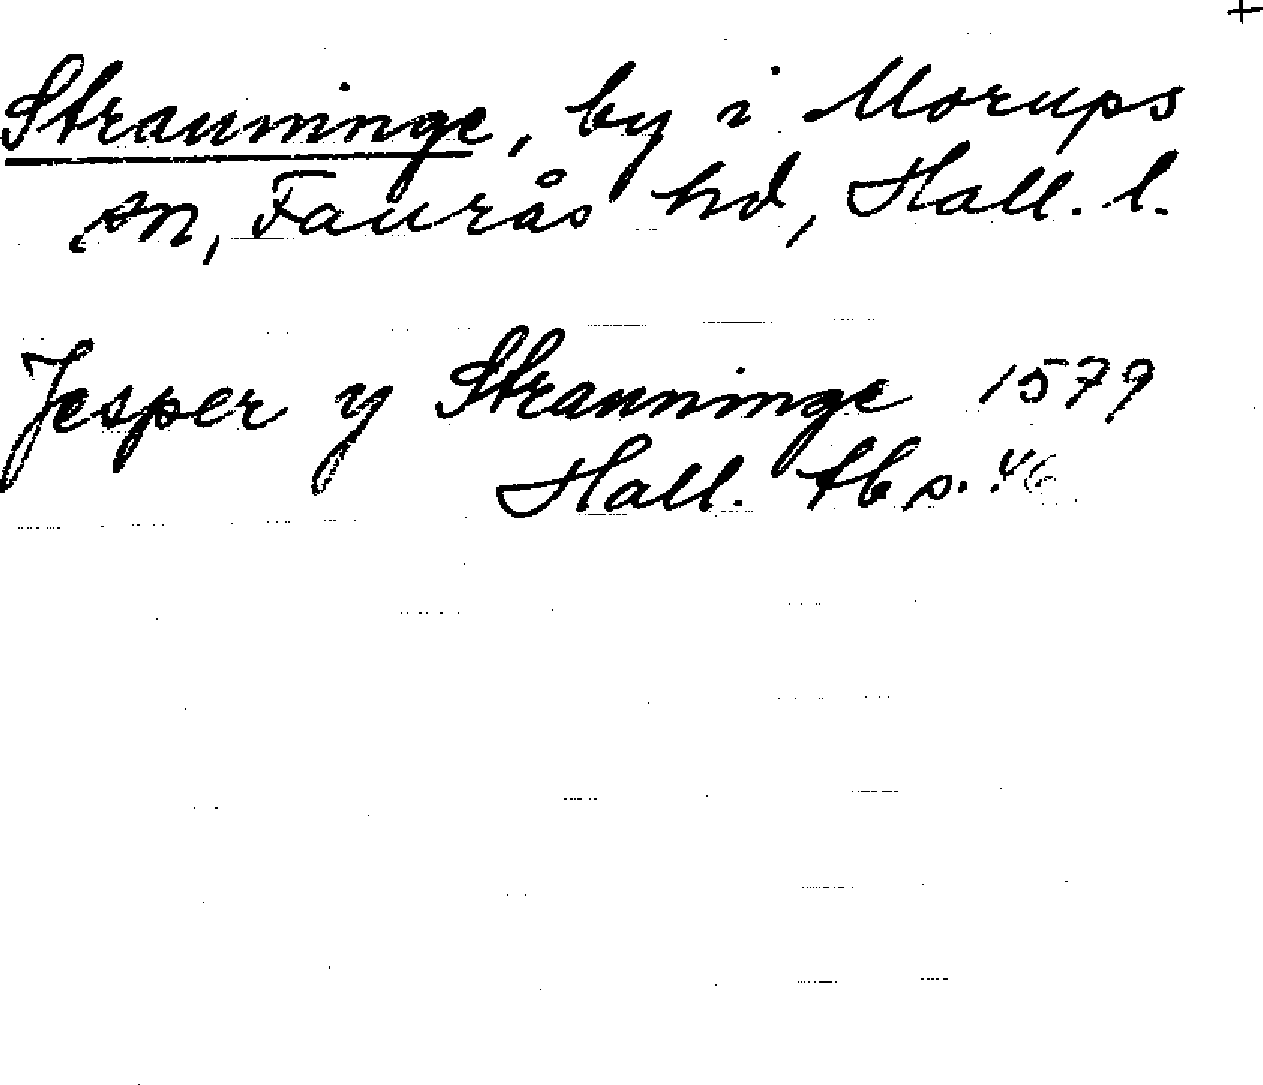 +
Strauninge, by i Morups
sn, Faurås hd, Hall. l.
Jesper y Strauninge 1579
Hall. tb s. 46